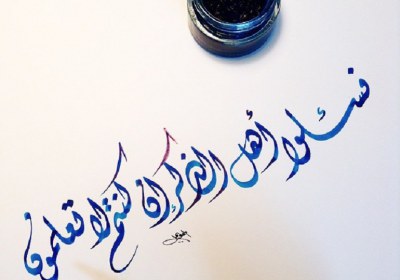 فسئلوا أهل الذكر ان كنتم لا تعلمون